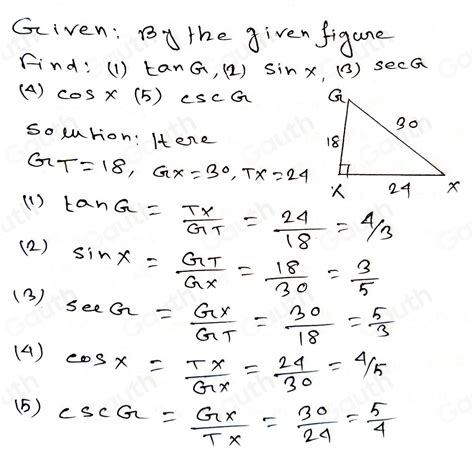 Given: By the given figure
Find: (1) tan G, (2) sin x, (3) sec G
(4) cos x (5) csc G
Solution: Here
GT = 18, GX = 30, TX = 24
G
18
30
X
24
X
(1) tan G = TX/GT = 24/18 = 4/3
(2) sin x = GT/GX = 18/30 = 3/5
(3) sec G = GX/GT = 30/18 = 5/3
(4) cos x = TX/GX = 24/30 = 4/5
(5) csc G = GX/TX = 30/24 = 5/4
Gauth